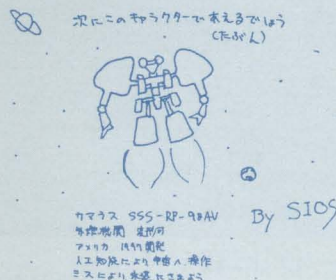 次にこのキャラクターであえるでしょう
(たぶん)
カマラス SSS-RP-98AU
変形可
アメリカ 1997開発
人工知能により 操作
ミスにより さまよう
By SIOS